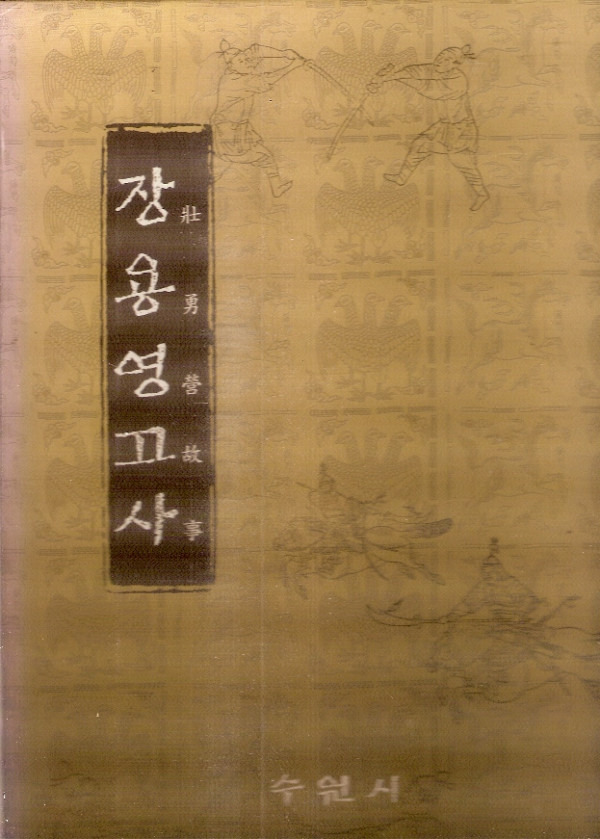 장용영고사
壯勇營故事
수원시